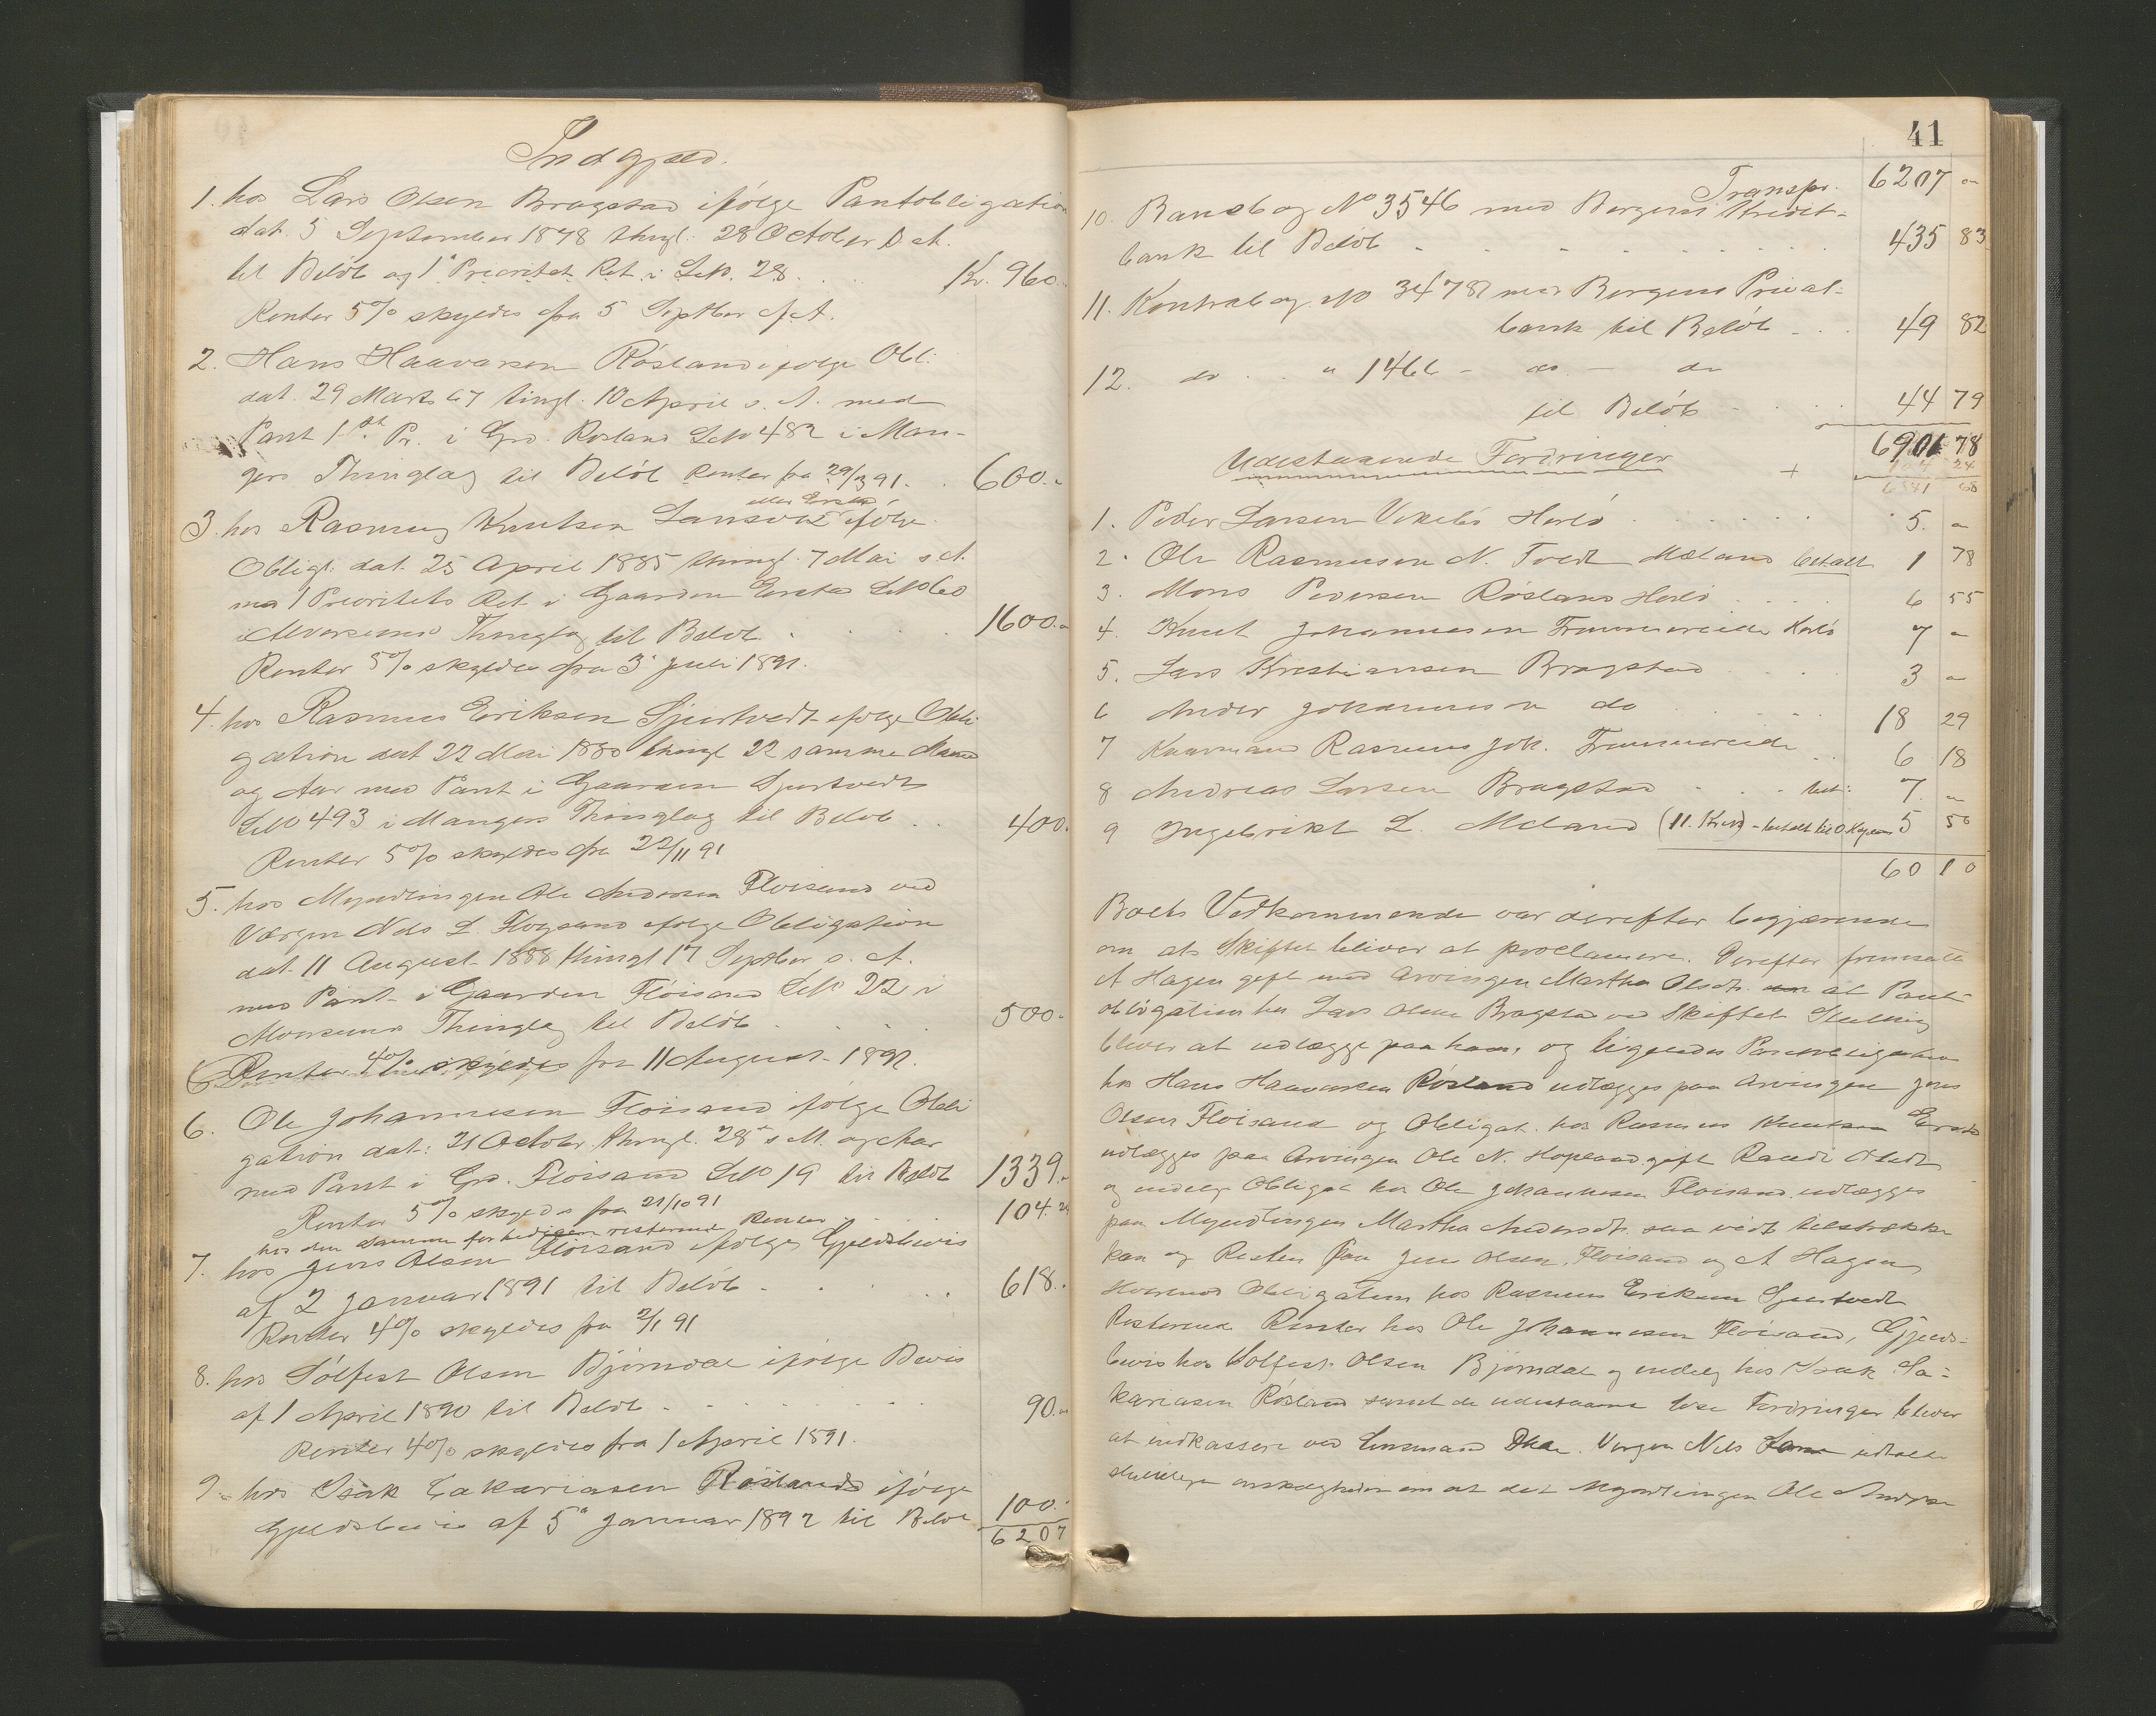 Indgjæld.
1. hos Lars Olsen Bragstad ifölge Pantobligation
dat. 5 September 1878 thngl. 28 October s. A.
til Belöb og 1ste Prioritet Ret i LNo. 28 . . Kr. 960.
Renter 5% skyldes fra 5 Septbr f. A.
2. Hans Haavarsen Rösland ifölge Obl:
dat. 29 Marts 67 tingl. 10 April s. A. med
Pant 1st Pr. i Grd. Rösland LNo 482 i Man-
gers Thinglag til Belöb Renter fra 29/3 91. . 600. "
eller Erstad
3. hos Rasmus Knutsen ifölge
Obligt. dat. 25 April 1885 thingl. 7 Mai s. A.
med 1 Prioritets Ret i Gaarden Erstad LNo 60
i Alversunds Thinglag til Belöb . . . . 1600. "
Renter 5% skyldes fra 3 juli 1891.
4. hos Rasmus Eriksen Sjurtvedt ifölge Obli
gation dat 22 Mai 1880 thingl 22 samme Maaned
og Aar med Pant i Gaarden Sjurtvedt
LNo 493 i Mangers Thinglag til Belöb . . 400.
Renter 5% skyldes fra 22/11 91
5. hos Myndlingen Ole Andersen Floisand ved
Værgen Nels L. Floysand ifölge Obligation
dat. 11 August 1888 thingl 17 Septbr s. A.
med Pant i Gaarden Flöisand LNo 22 i
Alversunds Thinglag til Belöb . . . . 500.
Renter 4% skyldes fra 11 August 1891.
6. Ole Johannesen Flöisand ifölge Obli
gation dat: 21 Octobr thngl. 28 s. M. og Aar
med Pant i Grd. Flöisand LNo 19 til Belöb 1339. "
Renter 5% skyldes fra 21/10 91
hos den samme forhedigen resterende Renter . . 104. 24
7. hos Jens Olsen Flöisand ifölge Gjeldsbevis
af 2 Januar 1891 til Belöb . . . . 618. "
Renter 4% skyldes fra 2/1 91
8. hos Sölfest Olsen Björndal ifölge Bevis
af 1 April 1890 til Belöb . . . . . . 90. "
Renter 4% skyldes fra 1 April 1891.
9. hos Isak Zakariasen Röslands ifölge
Gjeldsbevis af 5 Januar 1892 til Belöb 100. "
6207
41
Transpr. 6207 "
10. Bankbog No 3546 med Bergens Kredit-
bank til Belöb . . . . . . . 435 83
11. Kontrabog No 34787 med Bergens Privat-
bank til Belöb . . . 49 82
12. do . " 1466 - do - do
til Belöb . . . . 44 79
6901 78
Udestaaende Fordringer +
1. Peder Larsen Herlö . . . . . . 5. "
2. Ole Rasmusen N. Tvedt Mæland betalt 1 78
3. Mons Pedersen Rösland Herlö . . . . 6 55
4. Knut Johannesen Frommereide Herlö 7 "
5. Lars Kristiansen Bragstad . . . 3 "
6 Anders Johannesen do . . . . . 18 29
7 Rasmus Joh. Frommereide . . 6 18
8 Andreas Larsen Bragstad . . . bet: 7. "
9 Ingebrikt L. Meland 5 50
60 10
Boets Vedkommende var derefter begjærende
om at Skiftet bliver at proclamere. Derefter fremsatte
A Hagen gift med Arvingen Martha Olsdtr. at Pant-
obligation hos Lars Olsen Bragstad ved Skiftets Slutning
bliver at udlægge paa ham, og ligeledes Pantobligation
hos Hans Haavarsen Rösland udlægges paa Arvingen Jens
Olsen Floisand og Obligat. hos Rasmus Knutsen Erstad
udlægges paa Arvingen Ole N. Hopland gift Randi Olsdtr
og endelig Obligat hos Ole Johannesen Floisand udlægges
paa Myndlingen Martha Andersdtr. saa vidt tilstrække
kan og Resten paa Jens Olsen Floisand og A Hagen
Hvorimod Obligation hos Rasmus Eriksen Sjurtvedt
Resterende Renter hos Ole Johannesen Flöisand, Gjelds-
bevis hos Solfest Olsen Björndal og endelig hos Isak Sa-
kariasen Rösland samt de udestaaende löse Fordringer bliver
at indkassere ved Lensmand Værgen Nels udtalte
om at det Myndlingen Ole Anders